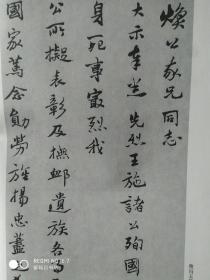 煥公家兄同志
大示奉悉先烈王施諸公殉國
身死事最烈我
公所擬表彰及撫卹遺族各
國家篤念勛勞旌揚忠藎